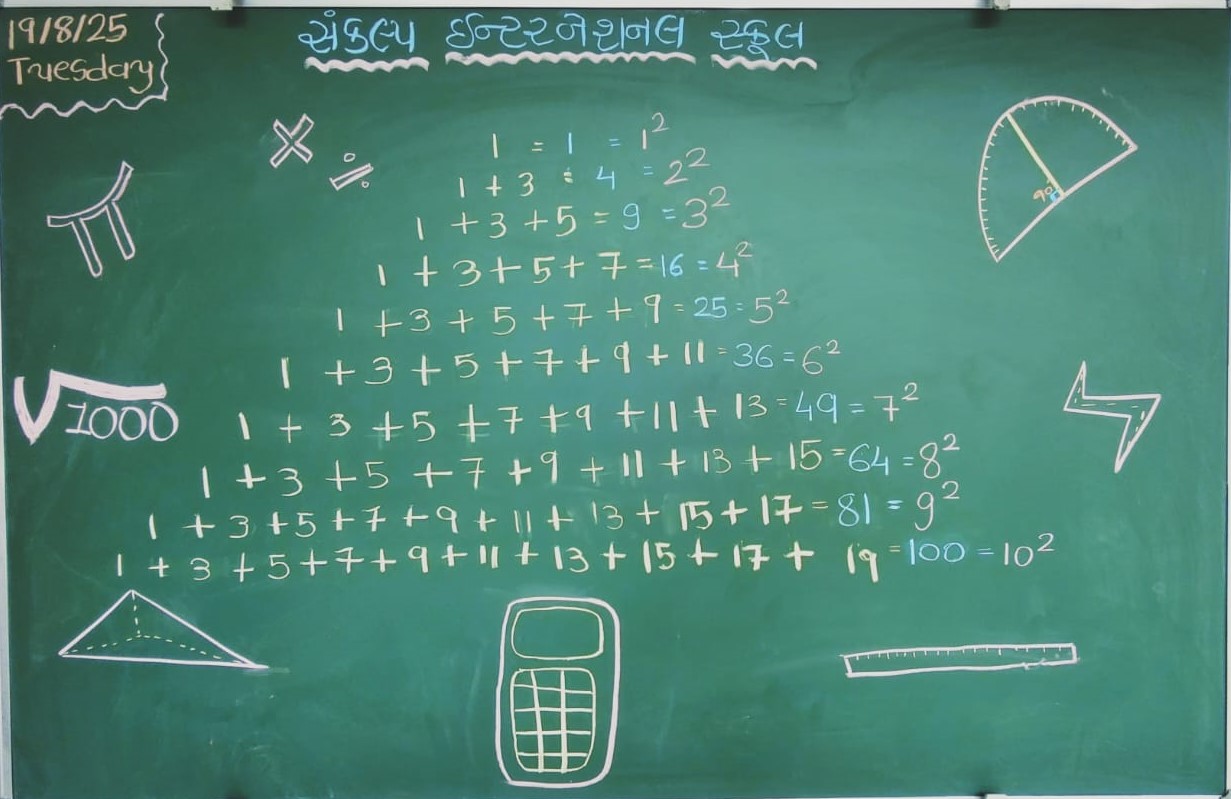 19/8/25
Tuesday
સંકલ્પ ઈન્ટરનેશનલ સ્કૂલ
1 = 1 = 1²
1 + 3 = 4 = 2²
1 + 3 + 5 = 9 = 3²
1 + 3 + 5 + 7 = 16 = 4²
1 + 3 + 5 + 7 + 9 = 25 = 5²
1 + 3 + 5 + 7 + 9 + 11 = 36 = 6²
1 + 3 + 5 + 7 + 9 + 11 + 13 = 49 = 7²
1 + 3 + 5 + 7 + 9 + 11 + 13 + 15 = 64 = 8²
1 + 3 + 5 + 7 + 9 + 11 + 13 + 15 + 17 = 81 = 9²
1 + 3 + 5 + 7 + 9 + 11 + 13 + 15 + 17 + 19 = 100 = 10²
× ÷
π
√1000
90